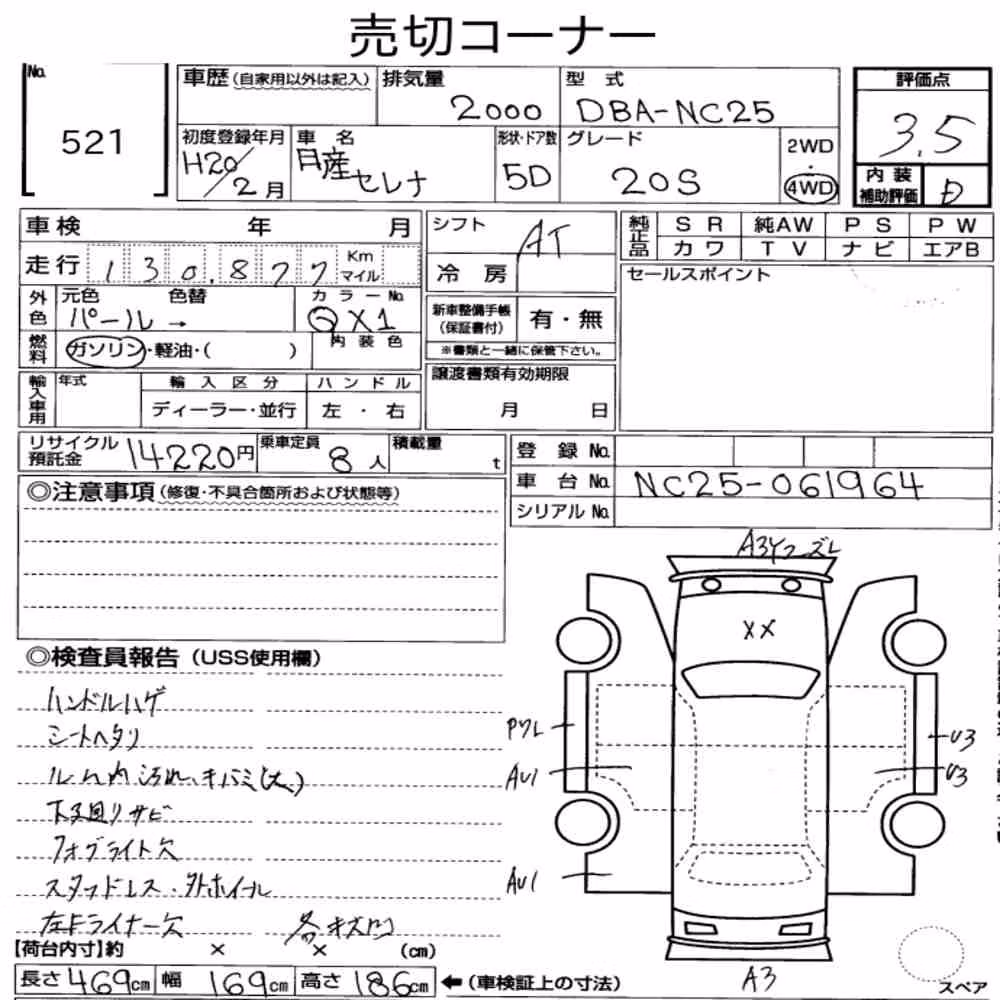 売切コーナー
No.
521
車歴(自家用以外は記入)
排気量
2000
型式
DBA-NC25
評価点
3.5
初度登録年月
H20/2月
車名
日産
セレナ
形状・ドア数
5D
グレード
20S
2WD
・
4WD
内装
補助評価
D
車検 年 月
シフト
AT
純正品
SR 純AW PS PW
カワ TV ナビ エアB
走行
130,877
Km
マイル
冷房
セールスポイント
外色
元色 色替
パール→
カラーNo.
QX1
新車整備手帳
(保証書付)
有・無
※書類と一緒に保管下さい。
燃料
ガソリン・軽油・( )
内装色
輸入車用
年式
輸入区分
ディーラー・並行
ハンドル
左・右
譲渡書類有効期限
月 日
リサイクル
預託金
14220円
乗車定員
8人
積載量
t
登録No.
車台No.
NC25-061964
シリアルNo.
◎注意事項(修復・不具合箇所および状態等)
A3Yフーズレ
XX
◎検査員報告(USS使用欄)
ハンドルハゲ
シートヘタリ
ルーム内汚れ、キバミ(大)
下回りサビ
フォグライト欠
スタッドレス・外ホイール
左Fライナー欠
各キズ凹
PワL
AU1
AU1
U3
U3
A3
スペア
【荷台内寸】約 × × (cm)
長さ469cm 幅169cm 高さ186cm ←(車検証上の寸法)